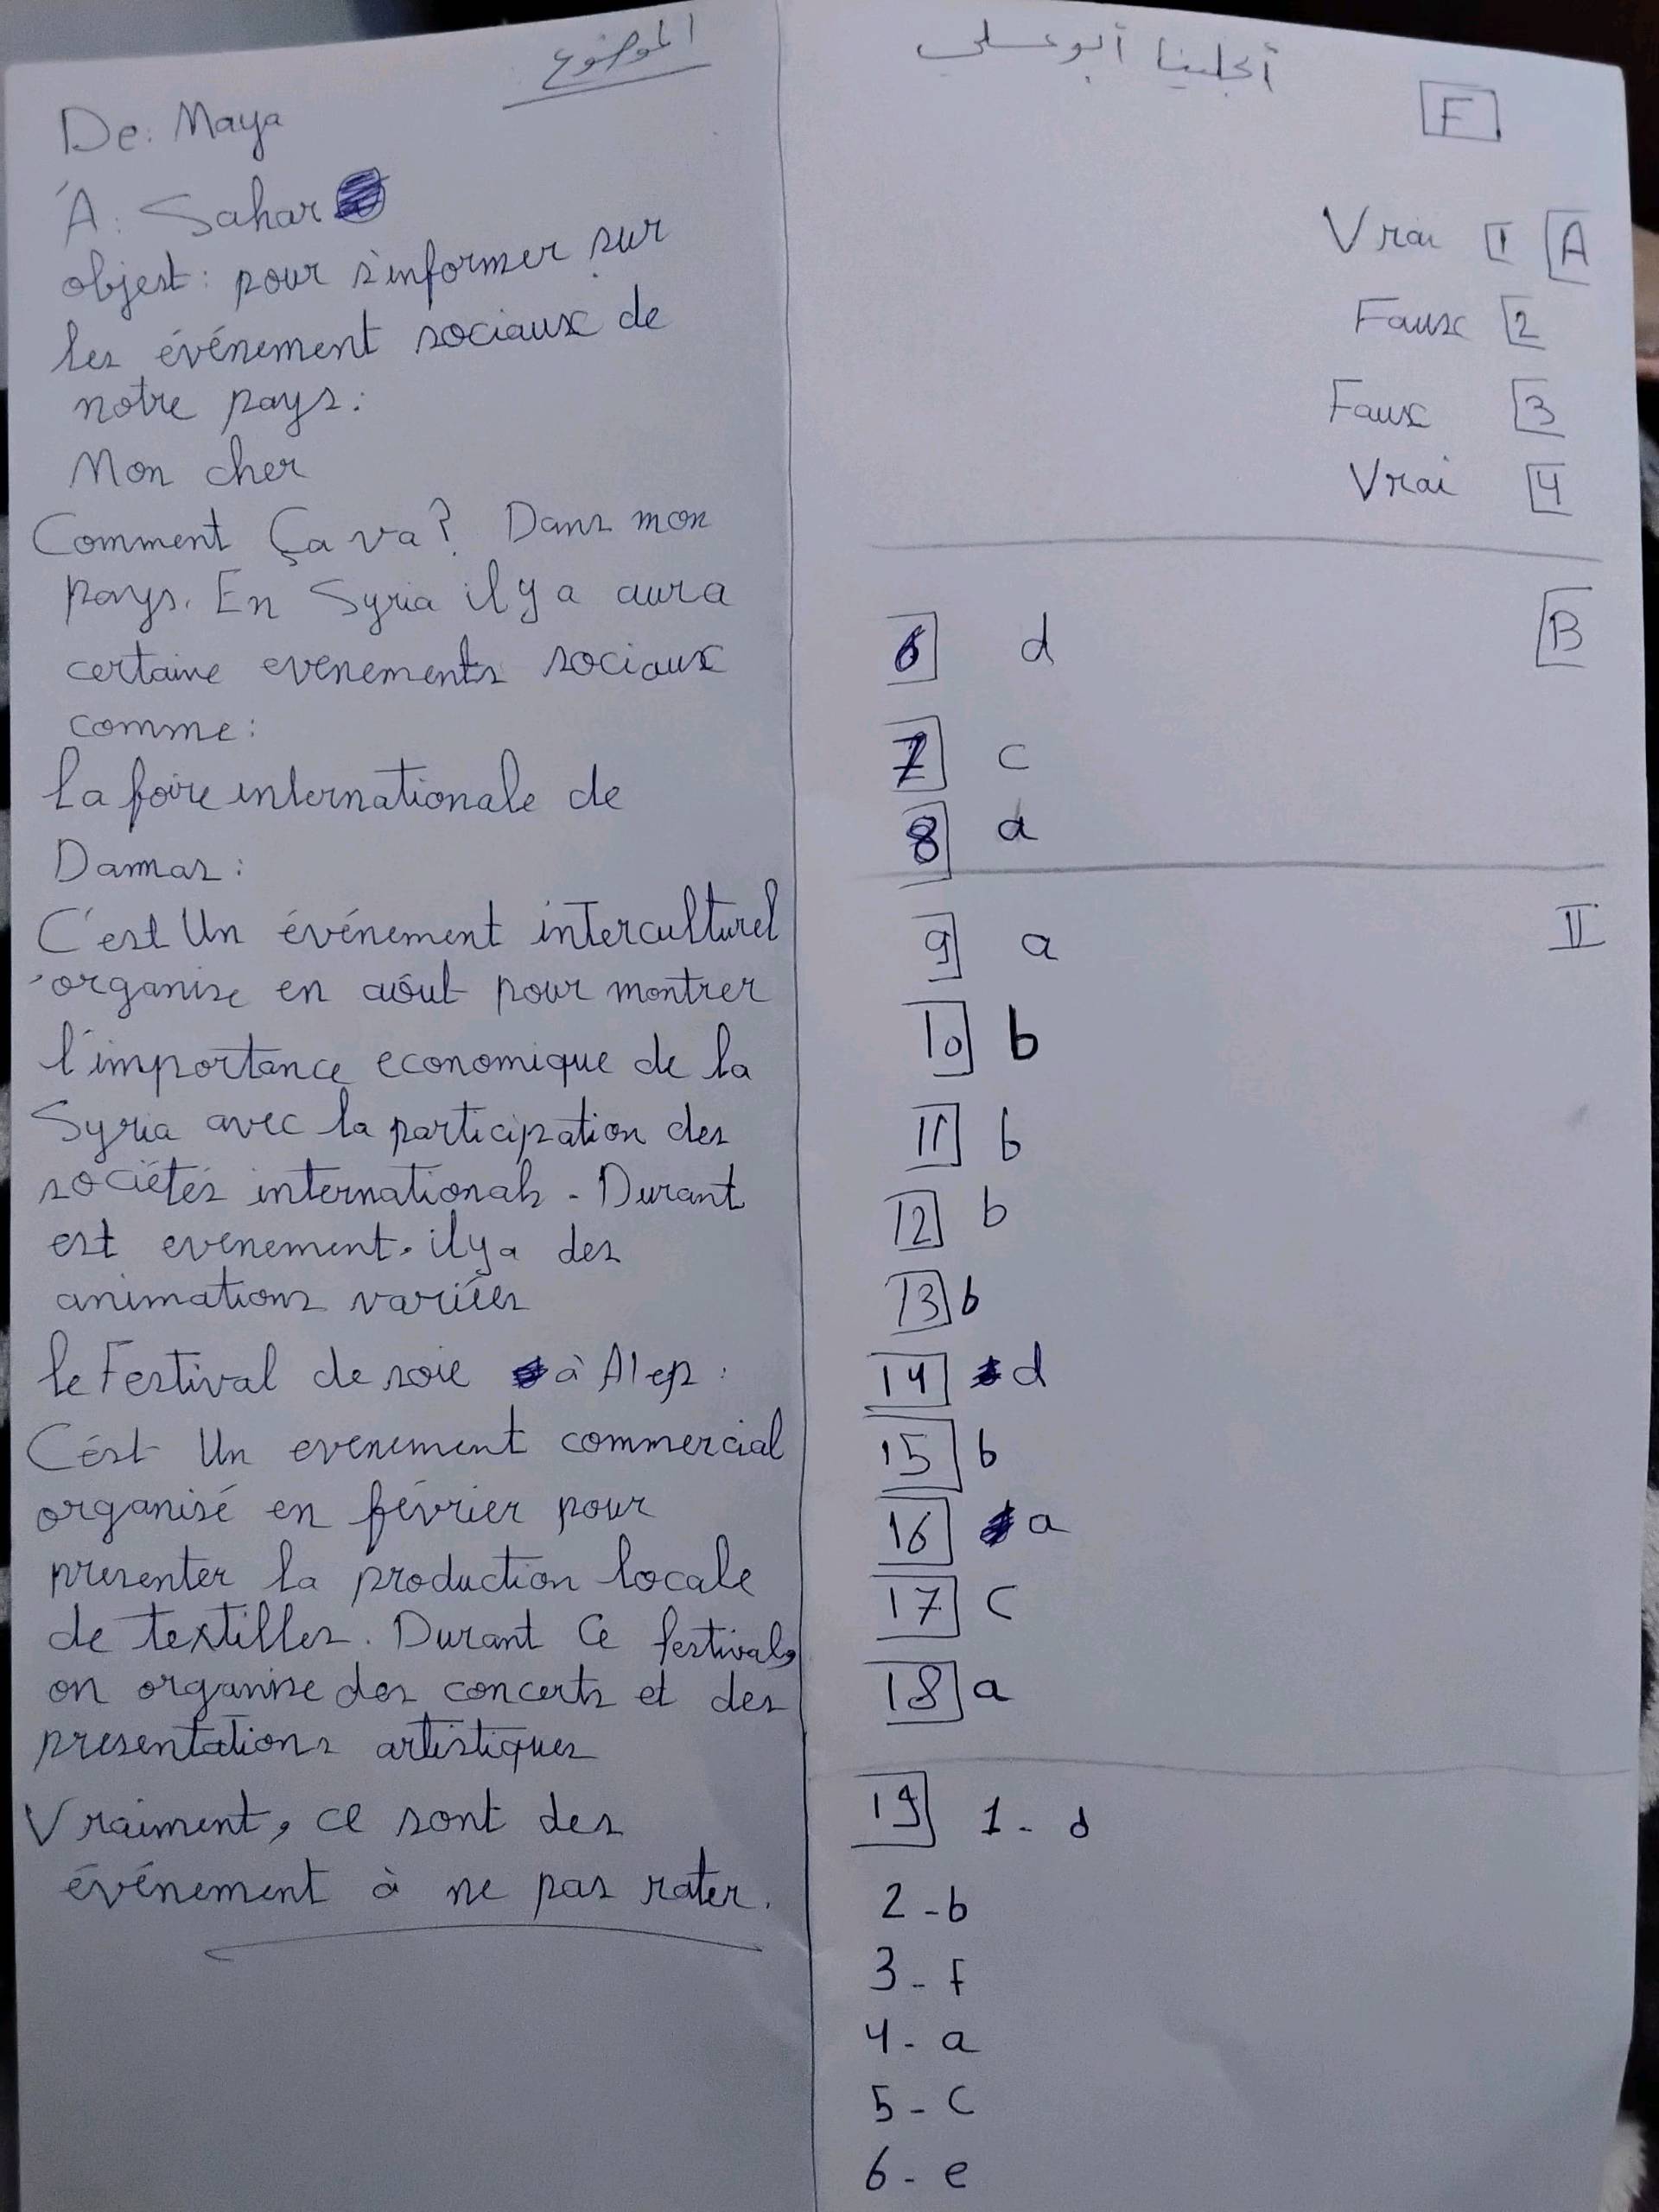 الموضوع
De: Maya
À: Sahar
objest: pour s'informer sur
les événement sociaux de
notre pays:
Mon cher
Comment Ça va? Dans mon
pays. En Syria il y a aura
certaine evenements sociaux
comme:
La foire internationale de
Damas:
C'est Un événement interculturel
organise en aôut pour montrer
l'importance economique de la
Syria avec la participation des
sociétés internationals - Durant
est evenement. il y a des
animations variées
le Festival de soie à Alep:
Cést Un evenement commercial
organisé en février pour
presenter la production locale
de textilles. Durant Ce festival,
on organise des concerts et des
presentations artistiques
Vraiment, ce sont des
événement à ne pas rater.
أنجلينا أبو عسلي
F
Vrai 1 A
Faux 2
Faux 3
Vrai 4
B
6 d
7 c
8 d
II
9 a
10 b
11 b
12 b
13 b
14 d
15 b
16 a
17 c
18 a
19 1- d
2-b
3-f
4-a
5-c
6-e